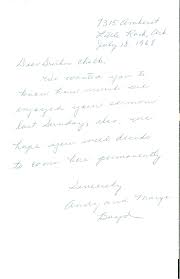 7315 Amherst
Little Rock, Ark
July 18 1968
Dear Brother Chalk,
We wanted you to
know how much we
enjoyed your sermon
last Sunday. Also, we
hope you will decide
to come here permanently
Sincerely
Andy and Marge
Boyd